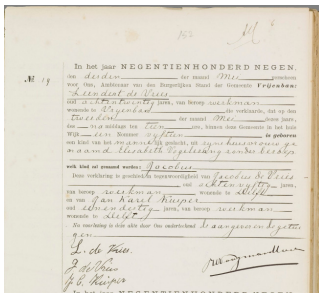 152
In het jaar NEGENTIENHONDERD NEGEN,
No. 19
den derden der maand Mei verscheen
voor Ons, Ambtenaar van den Burgerlijken Stand der Gemeente Vrijenban:
Leendert de Vries
oud achtentwintig jaren, van beroep werkman
wonende te Vrijenban die verklaarde, dat op den
tweeden der maand Mei dezes jaars,
des middags te tien ure, binnen deze Gemeente in het huis
Wijk een Nommer vijftien is geboren
een kind van het mannelijk geslacht, uit zijne huisvrouw ge-
naamd Elisabeth zonder beroep
welk kind zal genaamd worden: Jacobus
Deze verklaring is geschied in tegenwoordigheid van Jacobus de Vries
oud achtenvijftig jaren,
van beroep werkman wonende te Delft
en van Jan Karel Kuiper
oud jaren, van beroep werkman
wonende te Delft
En voorlezing is deze akte door Ons onderteekend de aangever en de getui-
gen.
L. de Vries.
J de Vries
J C Kuiper
In het jaar NEGENTIENHONDERD NEGEN